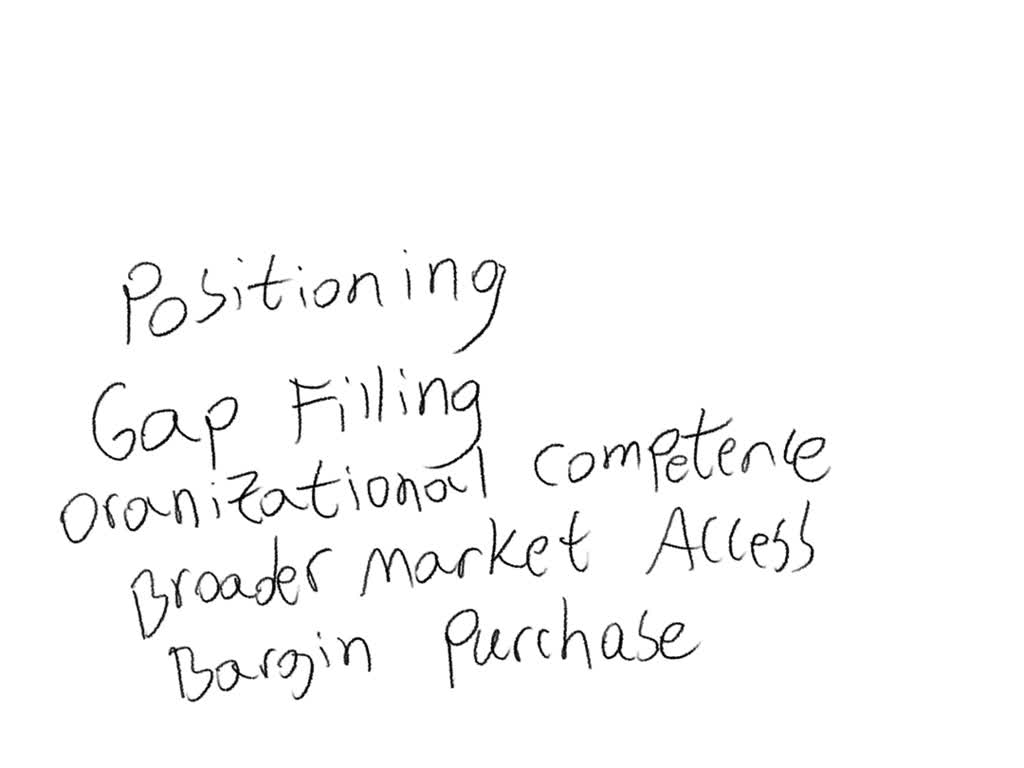 Positioning
Gap Filling
oranizational competence
Broader market Access
Bargin purchase